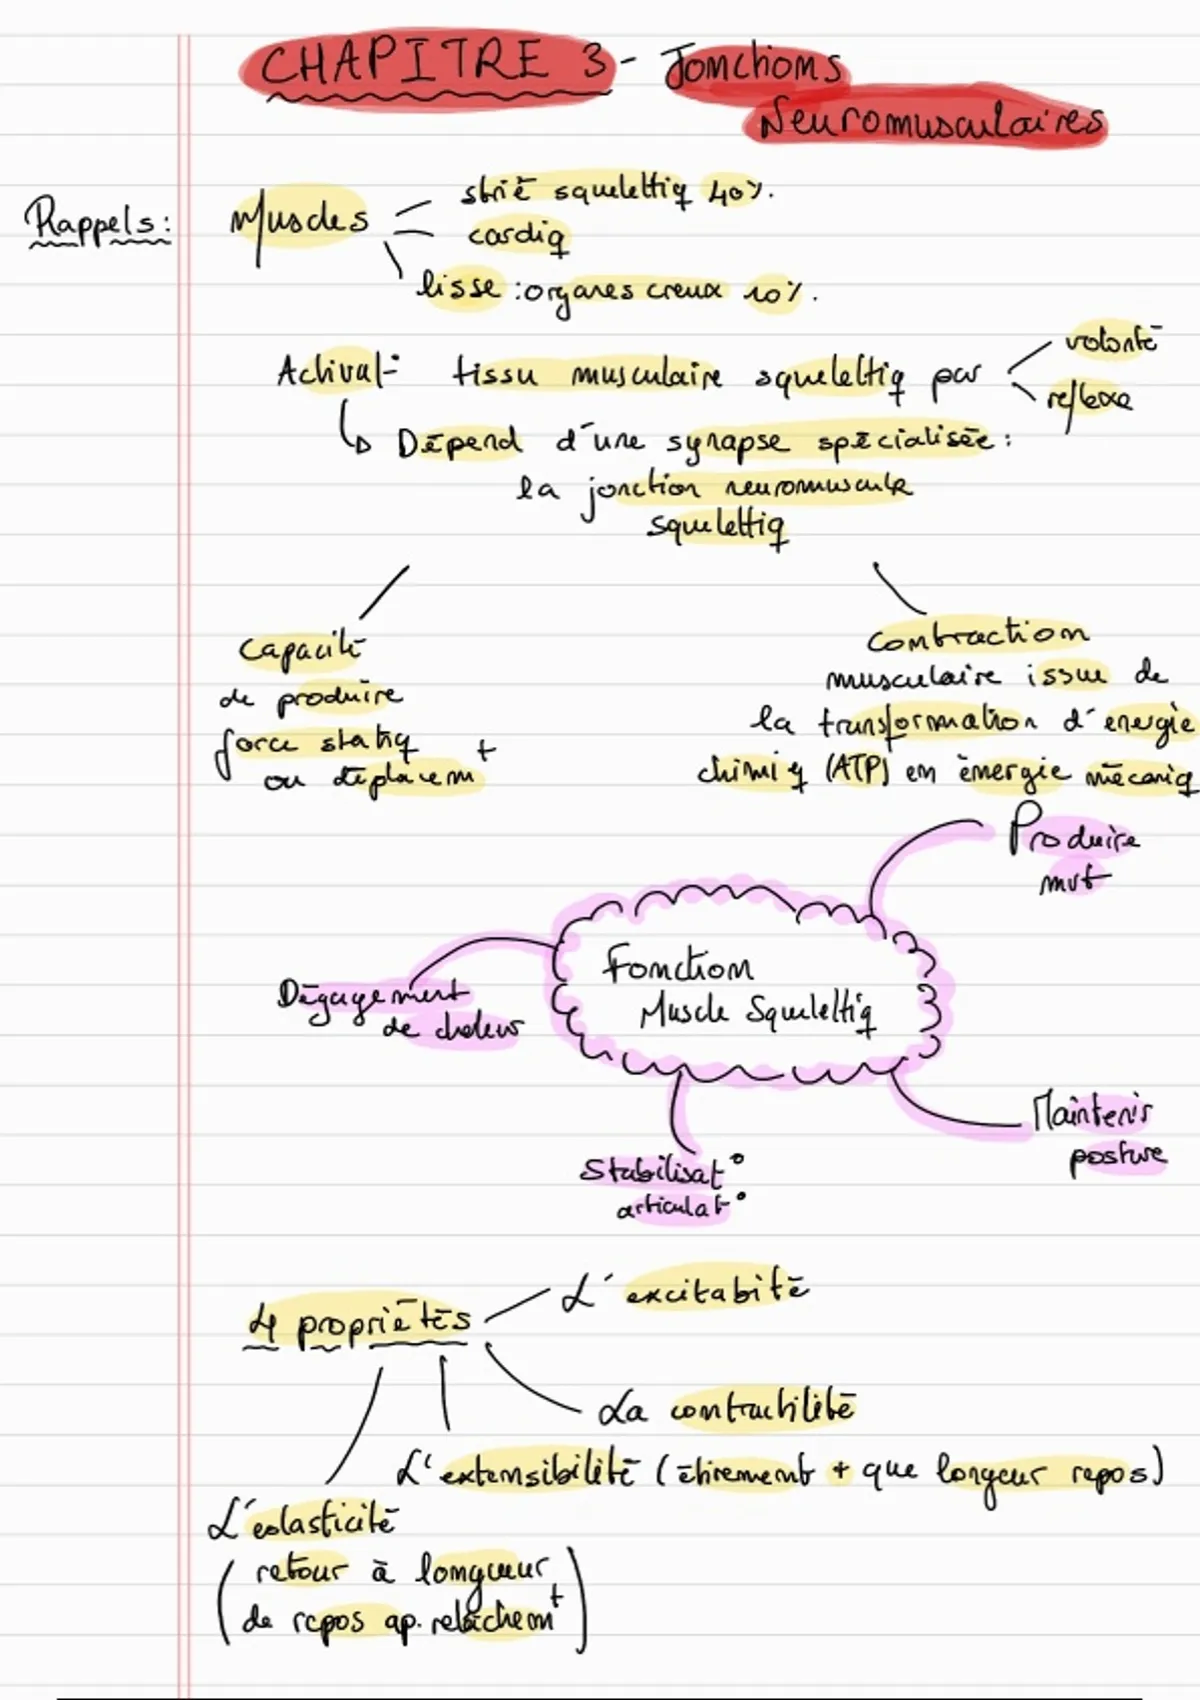 CHAPITRE 3 - Jonctions
Neuromusculaires
Rappels :
Muscles
strié squelettiq 40%.
cardiq
lisse : organes creux 10%.
Activat° tissu musculaire squelettiq par
volonté
reflexe
↳ Dépend d'une synapse spécialisée :
la jonction neuromusculr
squelettiq
Capacité
de produire
force statiq
ou déplacemt
Contraction
musculaire issue de
la transformation d'energie
chimiq (ATP) en énergie mécaniq
Fonction
Muscle Squelettiq
Produire
mvt
Dégagement
de chaleur
Maintenir
posture
Stabilisat°
articulat°
4 propriétés
L'excitabité
La contractilité
L'extensibilité (étirement + que longeur repos)
L'eslasticité
(retour à longueur
de repos ap. relâchemt)